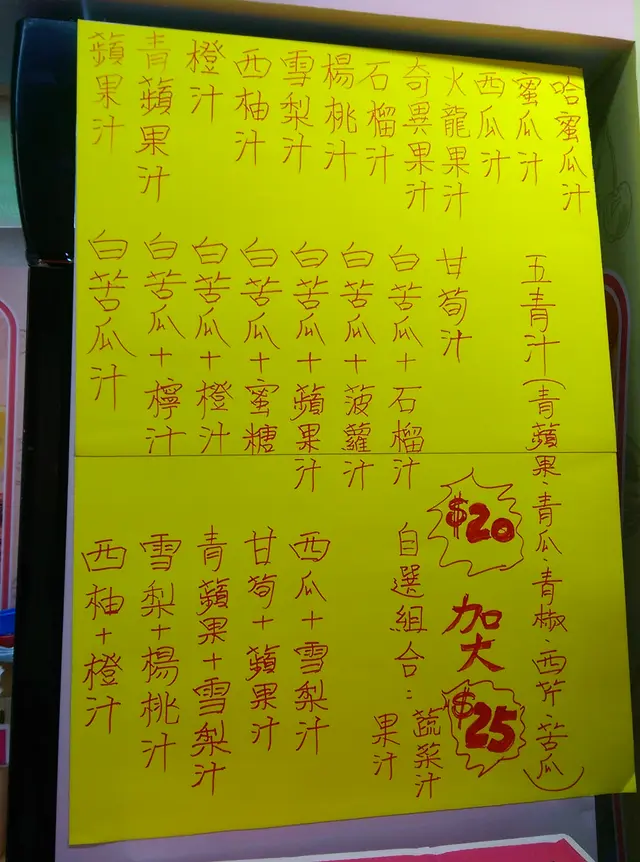 哈蜜瓜汁
蜜瓜汁
西瓜汁
火龍果汁
奇異果汁
石榴汁
楊桃汁
雪梨汁
西柚汁
橙汁
青蘋果汁
蘋果汁
五青汁(青蘋果、青瓜、青椒、西芹、苦瓜)
甘荀汁
白苦瓜+石榴汁
白苦瓜+菠蘿汁
白苦瓜+蘋果汁
白苦瓜+蜜糖
白苦瓜+橙汁
白苦瓜+檸汁
白苦瓜汁
$20
加大
$25
自選組合:蔬菜汁
果汁
西瓜+雪梨汁
甘荀+蘋果汁
青蘋果+雪梨汁
雪梨+楊桃汁
西柚+橙汁